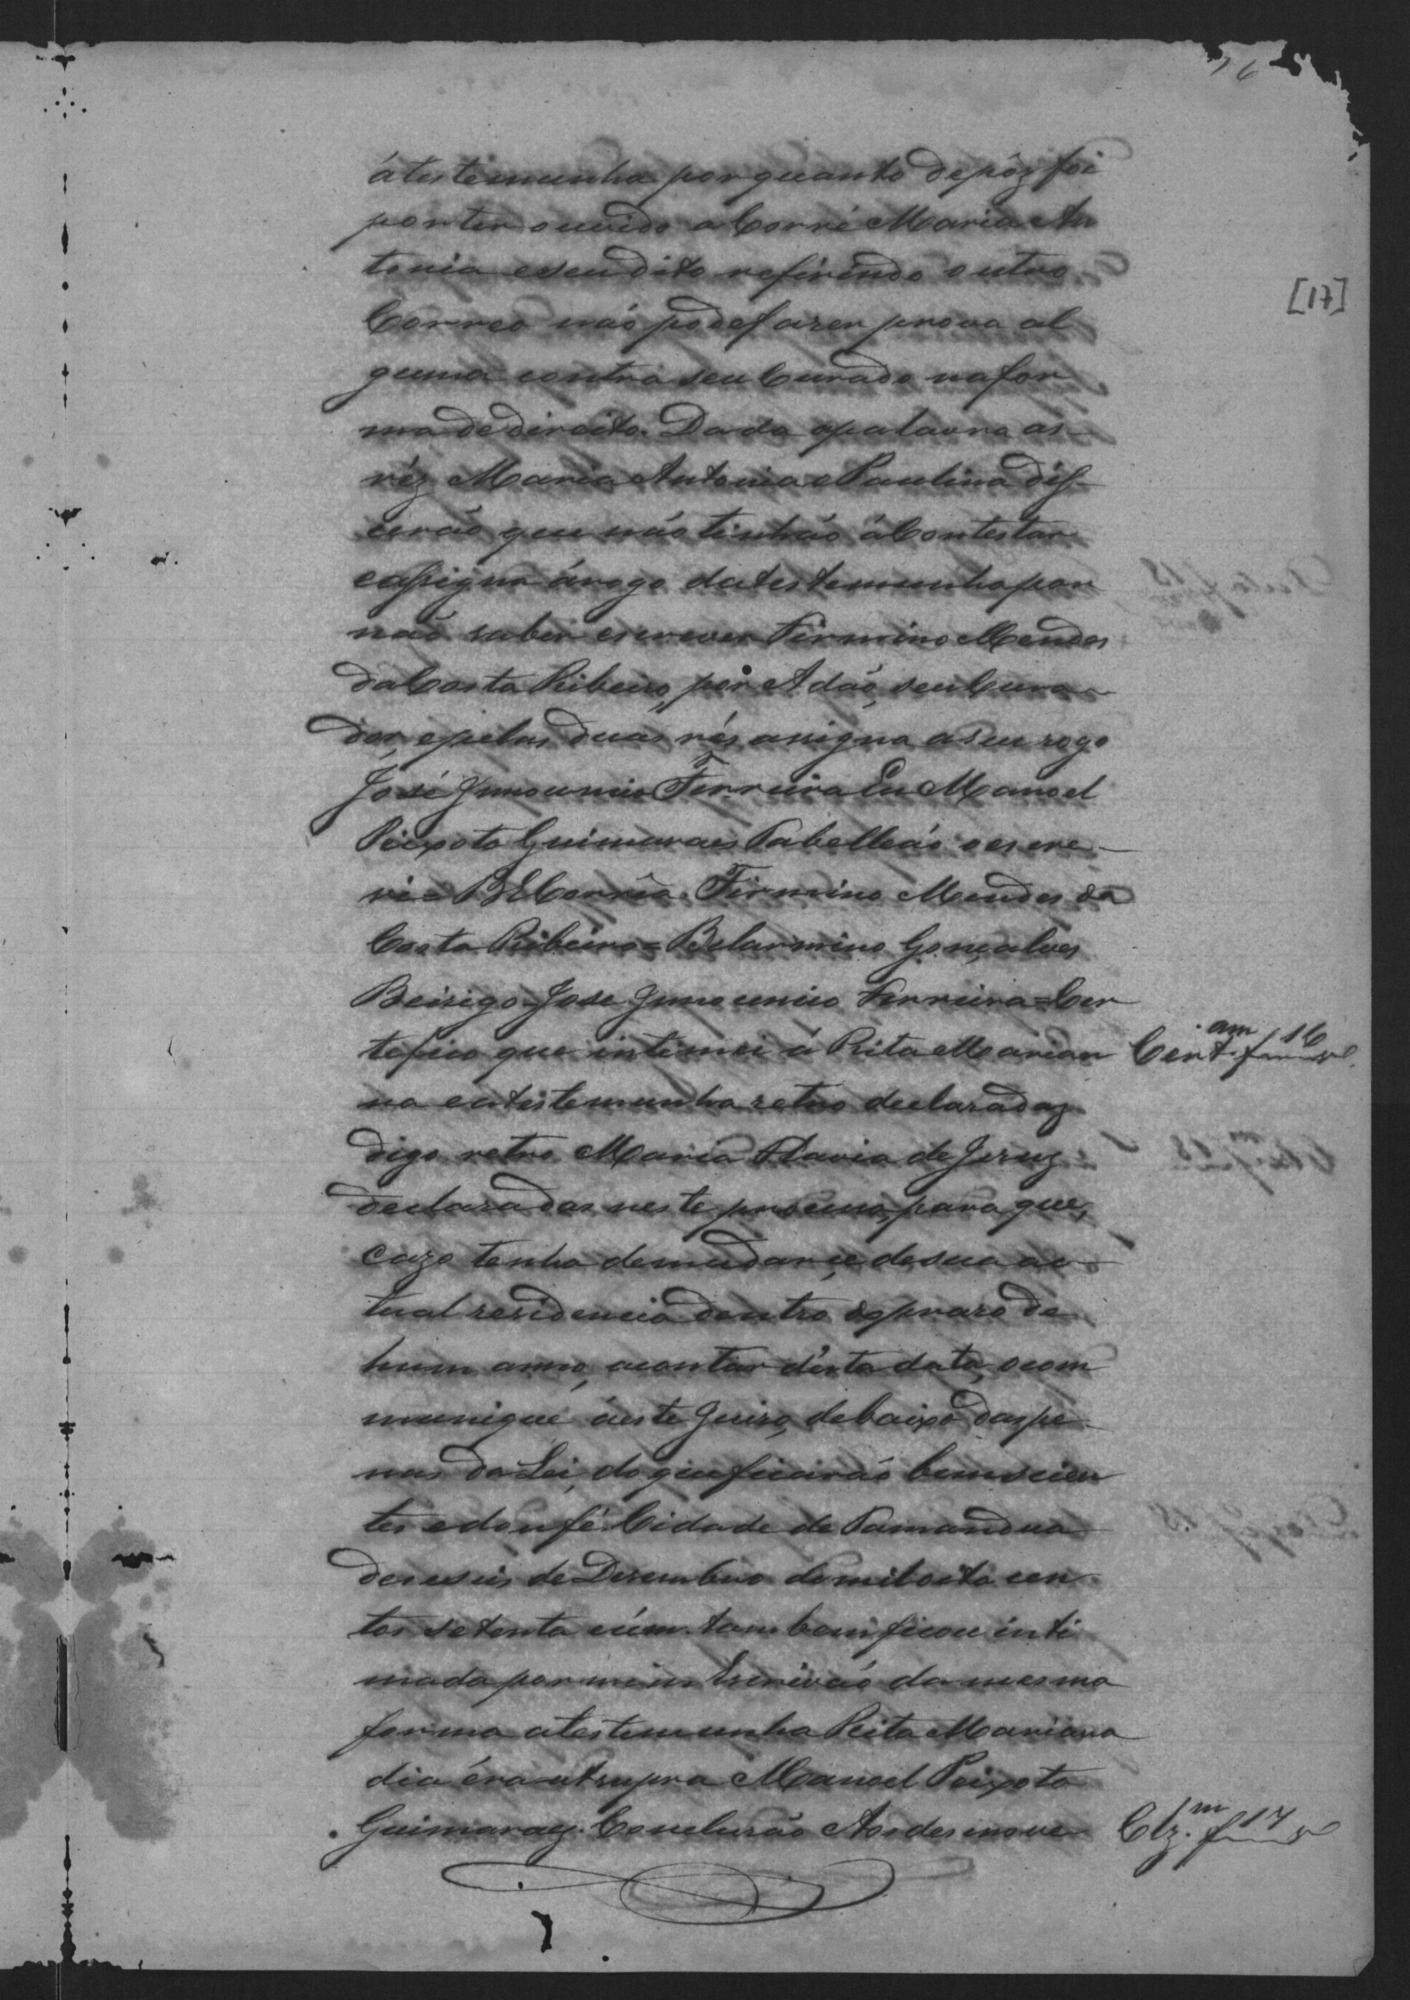 16
átestemunha porquanto depôz foi
por ter ouvido a Corré Maria An
tonia eseu dito refirindo outro
Correo não póde fazer prova al
guma contra seu Curado na for
ma de direito. Dada apalavra as
réz Maria Antonia e Paulina dis-
serão que não tinhão á Contestar
eassigna árogo datestemunha por
não saber escrever Firmino Mendes
da Costa Ribeiro, por Adão, seu Cura-
dor, epelas duas rés assigna a seu rogo
José Innocencio Ferreira Eu Manoel
Peixoto Guimaraes Tabelleaó o escre-
vi = B Corrêa. Firmino Mendes da
Costa Ribeiro = Belarmino Gonçalves
Beirigo José Innocencio Ferreira = Cer
tefico que intimei á Rita Marian
na eatestemunha retro declaradaz
digo retro Maria Flavia de Jezuz
declaradas neste processo, para que,
cazo tenha demudarse desua ac-
tual residencia dentro doprazo de
hum anno, acontar d'esta data, ocom
munique áeste Juizo, debaixo das pe-
nas da Lei, do que ficarão bem scien
tes edou fé. Cidade de Tamandua
dezeseis de Dezembro de mil oito cen-
tos setenta eúm. tambem ficou inti
mada por mim Escrivaó da mesma
forma atestemunha Rita Mariana
dia éra ut supra Manoel Peixoto
Guimaraez. Concluzão Aos desenove
[17]
Cert.am f 16
Clz.m f 17